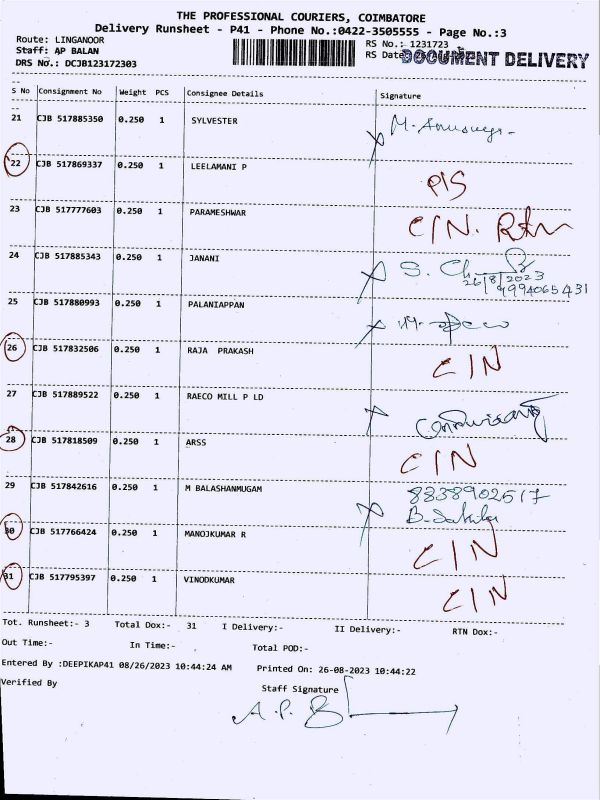 THE PROFESSIONAL COURIERS, COIMBATORE
Delivery Runsheet - P41 - Phone No.:0422-3505555 - Page No.:3
Route: LINGANOOR
RS No.: 1231723
Staff: AP BALAN
RS Date
DOCUMENT DELIVERY
DRS No.: DCJB123172303
S No Consignment No Weight PCS Consignee Details Signature
21 CJB 517885350 0.250 1 SYLVESTER
22 CJB 517869337 0.250 1 LEELAMANI P
P/S
23 CJB 517777603 0.250 1 PARAMESHWAR C/N. Rtn
24 CJB 517885343 0.250 1 JANANI S. Ch
26/8/2023
9994065431
25 CJB 517880993 0.250 1 PALANIAPPAN
26 CJB 517832506 0.250 1 RAJA PRAKASH C/N
27 CJB 517889522 0.250 1 RAECO MILL P LD
28 CJB 517818509 0.250 1 ARSS C/N
29 CJB 517842616 0.250 1 M BALASHANMUGAM 8838902517
30 CJB 517766424 0.250 1 MANOJKUMAR R C/N
31 CJB 517795397 0.250 1 VINODKUMAR C/N
Tot. Runsheet:- 3 Total Dox:- 31 I Delivery:- II Delivery:- RTN Dox:-
Out Time:- In Time:- Total POD:-
Entered By :DEEPIKAP41 08/26/2023 10:44:24 AM Printed On: 26-08-2023 10:44:22
Verified By Staff Signature
A.P.B